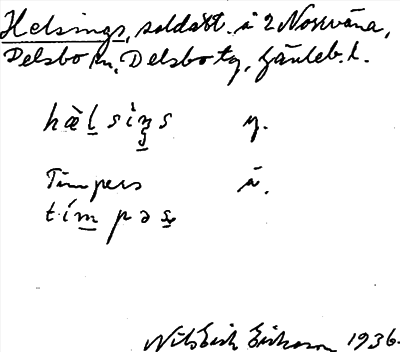 Helsings, soldatt. å 2 Norrväna,
Delsbo sn, Delsbo tg, Gävleb. l.
hæ̀l̲siŋ̲s y.
Timpers ä.
tím̲pəs̲
Nils Erik Erikson 1936.